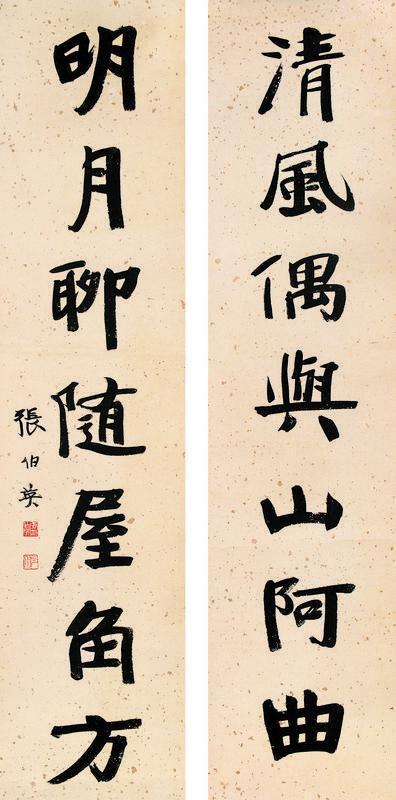 清風偶與山阿曲
明月聊随屋角方
張伯英